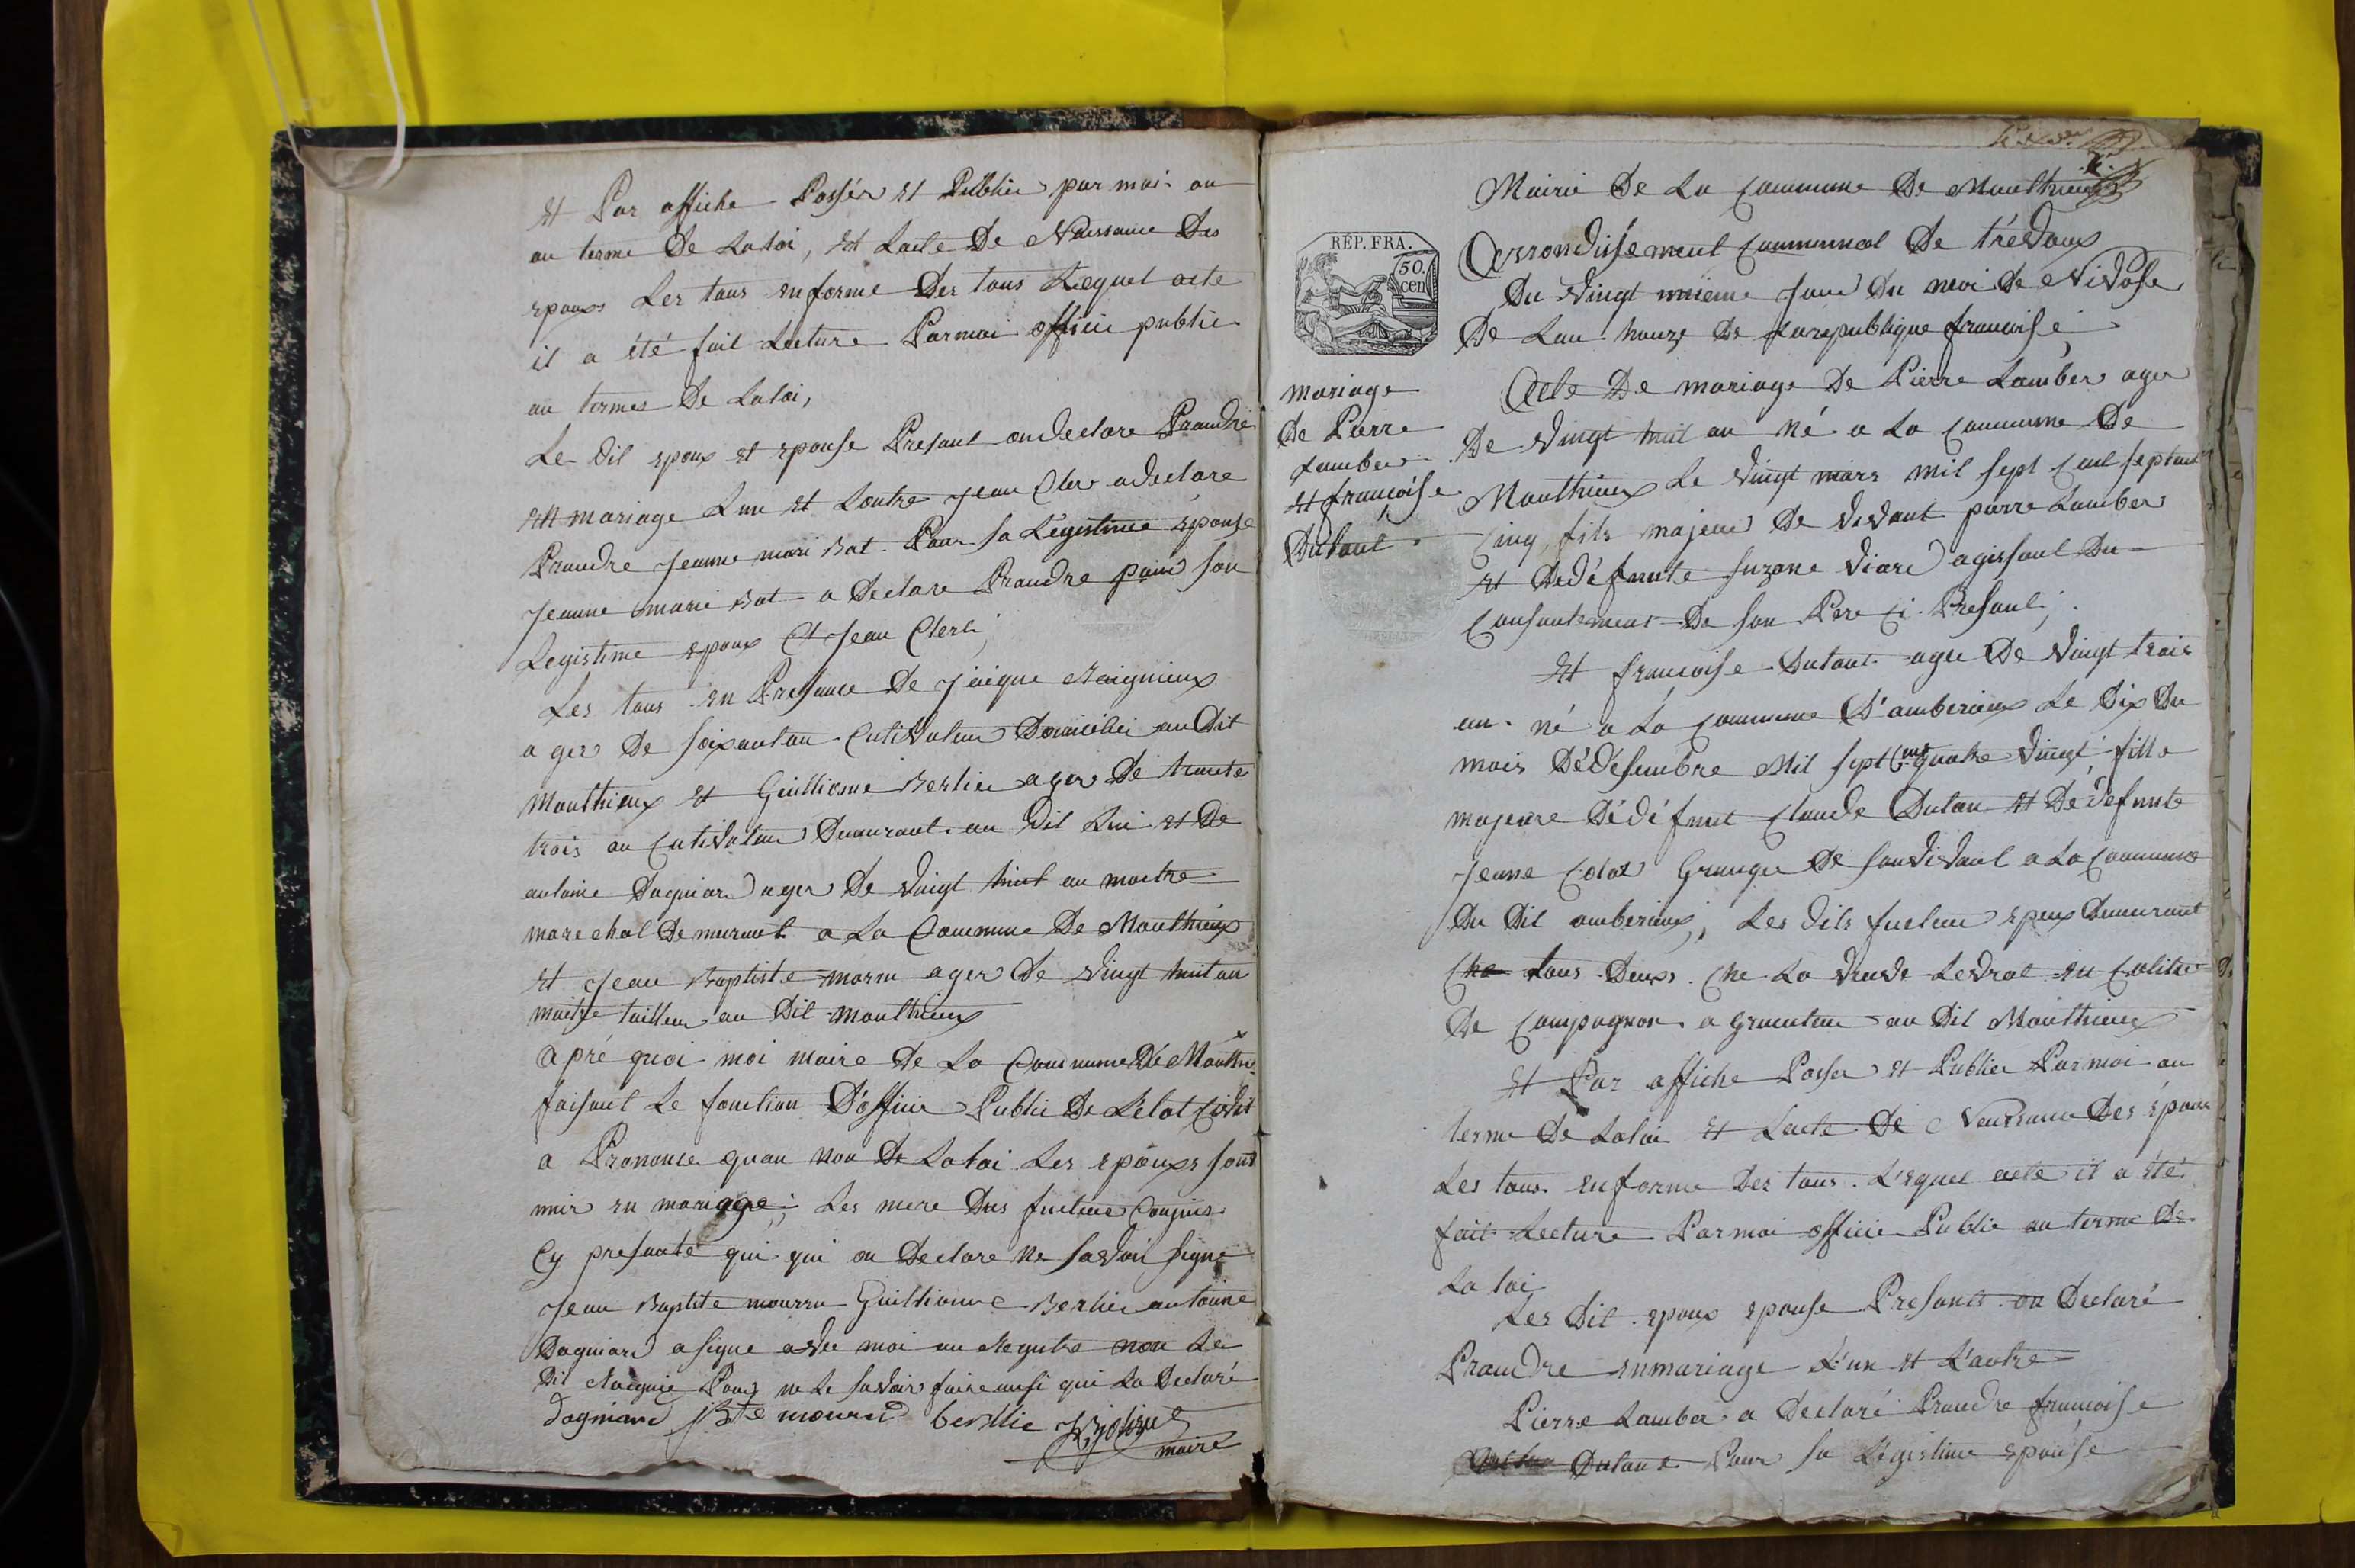 Et Par affiche Possér et Publier par moi au
au terme De La loi, Et Lacte De Naissance Des
epouxs Les tous en forme Des tous Lequel acte
il a été fait Lecture Parmoi officie public
au termes De La loi,
Le Dit epoux et epouse Presant on declare Prandre
en mariage Lun et Loutre Jean Cler a declare
Prandre Jeanne mari Bat Pour sa Légistime epouse
Jeanne marie Bat a Declare Prandre pour son
Legistime epoux Jean Clerc;
Les tous en Presance De Jaique
a ger De soixantan Cultivateur Domicilier au Dit
Monthieux et Guilliaume Berlier ager De trante
trois an Cultivateur Demurant au Dit Lui et De
antoine Dagniard ager De vingt huit an maitre
marechal Demurant a La Commune De Monthieux
et Jean Baptiste morru ager De vingt huit an
maitre tailleur au Dit monthieux
a pré quoi moi maire De La Commune De Monthie
faisant Le fonction D'officier Public De L'etat Civil
a Prononcer quau non De La loi Les epouxs sont
unir en mariage; Les mere Des fucture Conjuis
Cy presante qui qui on Declare ne savoir signe
Jean Baptiste mourru Guilliaume Berlier antoine
Dagniard a signe avec moi au Registre non Le
Dit Pour ne Le savoir faire ausi qui La Declaré
dagniard jBte mourru berllie
maire
Mairie De La Commune De Monthieux
Arrondissement Communal De trévoux
Du vingt unieme jour Du moi De Nivose
De Lan honze De La republique francoise,
RÉP. FRA.
50.
cen
mariage
De Pierre
Lamber
et francoise
Dutant
Acte De mariage De Pierre Lamber ager
De vingt huit an né a La Commune De
Monthieux Le vingt mars mil sept cent septante
Cinq, fils majeur De vivant pierre Lamber
et De défunte suzane viard agissant Du
Consantement De son Pere Ci Presant;
Et francoise Dutant agee De vingt trois
an né a La Commune D'amberieux Le Dix Du
mois De Désembre Mil sept cent quatre vingt, fille
majeure De défunt Claude Dutan et De defunte
Jeane Granger De son vivant a La Commune
Du Dit amberieux; Les Dits fucteur epoux Demurant
Che tous Deux Che La veuve Levrat en Calite
De Compagnon a Griculteur au Dit Monthieux
Et Par affiche Posser et Publier Par moi au
terme De La loi et Lacte De Naissance Des epoux
Les tous en forme Des tous Lesquel acte il a été
fait Lecture Par moi officie Public au terme De
La loi
Les Dit epoux epouse Presants on Declaré
Prandre en mariage L'un et L'autre
Pierre Lamber a Declaré Prandre francoise
Dutant Pour sa Légistime epouse